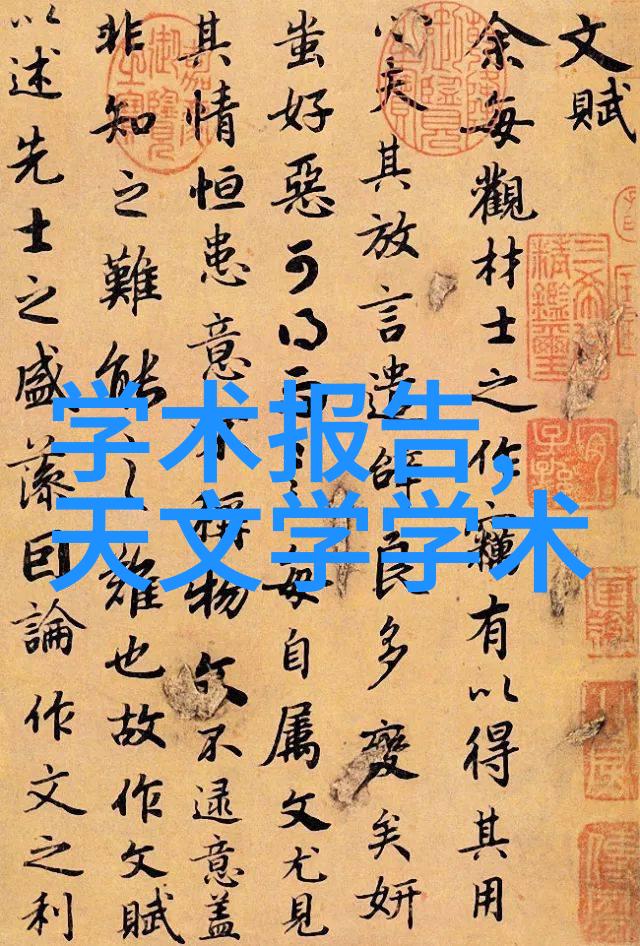 文賦
余每觀材士之作竊有以得其用
心夫其放言遣辭良多變矣妍
蚩好惡可得而言每自属文尤見
其情恒患意不稱物文不逮意盖
非知之難能之難也故作文賦
以述先士之盛藻因論作文之利
学术报告,
天文学学术